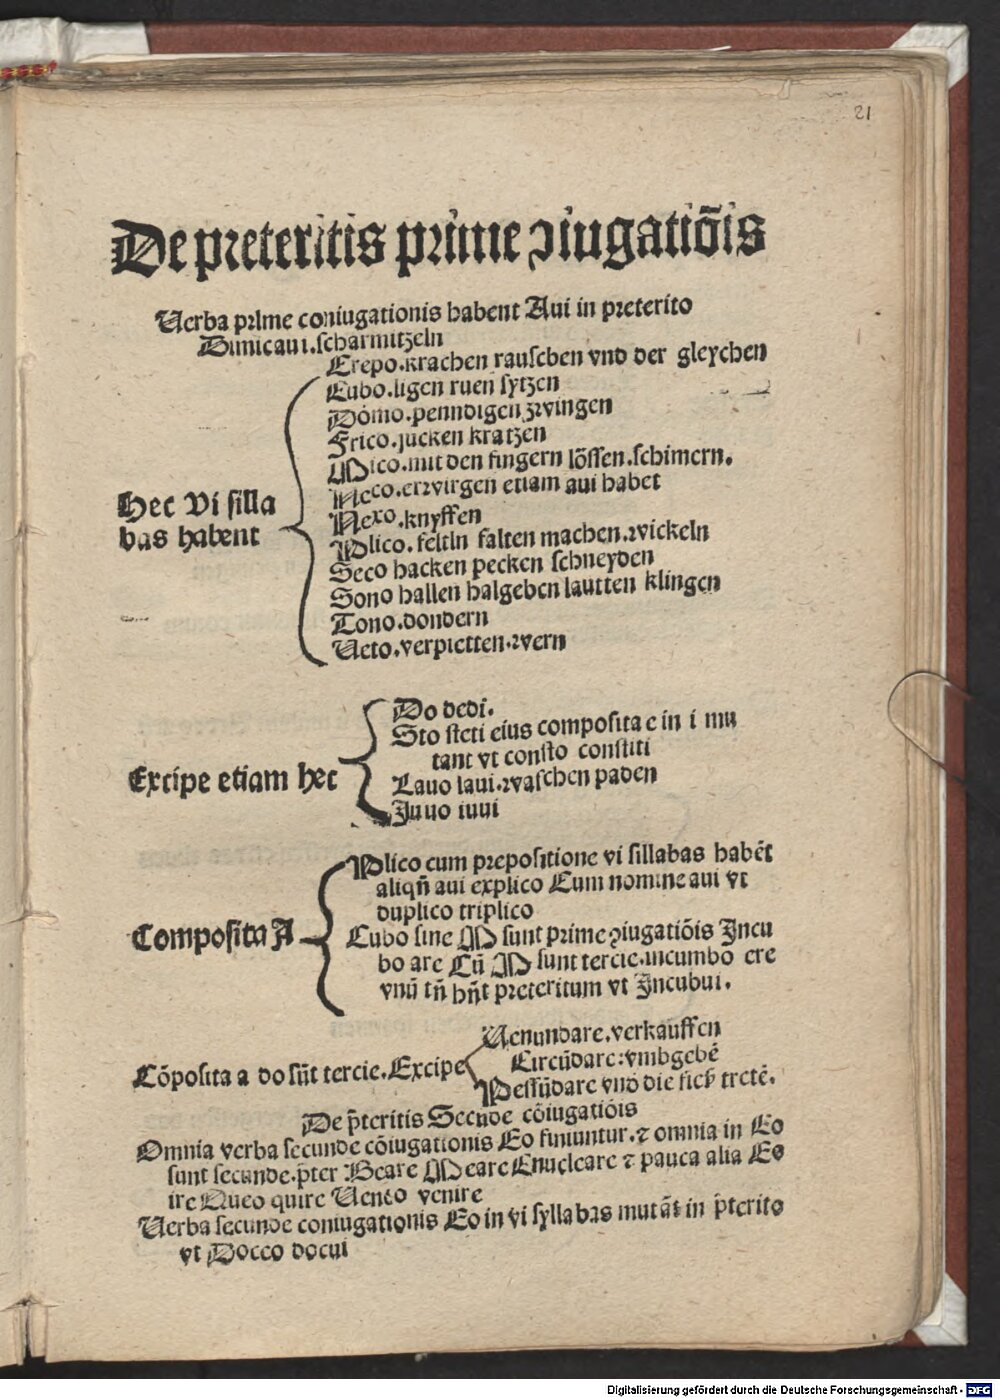 21
De preteritis prime ↄiugatiõis
Verba prime coniugationis habent Aui in preterito
Dimicaui.scharmitzeln
Crepo.krachen rauschen vnd der gleychen
Cubo.ligen ruen sytzen
Domo.penndigen zwingen
Frico.jucken kratzen
Mico.mit den fingern lõssen.schimern.
Neco.erwirgen etiam aui habet
Nexo.knyffen
Hec Vi silla
bas habent
Plico.feltln falten machen.wickeln
Seco hacken pecken schneyden
Sono hallen halgeben lautten klingen
Tono.dondern
Veto.verpietten.wern
Do dedi.
Sto steti eius composita e in i mu
tant vt consto constiti
Excipe etiam hec
Lauo laui.waschen paden
Juuo iuui
Plico cum prepositione vi sillabas habẽt
aliqñ aui explico Cum nomine aui vt
duplico triplico
Composita A
Cubo sine M sunt prime ↄiugatiõis Incu
bo are Cũ M sunt tercie.incumbo ere
vnũ tñ hñt preteritum vt Incubui.
Venundare.verkauffen
Cõposita a do sũt tercie.Excipe
Circũdare:vmbgebẽ
Pessũdare vnd die fieß tretẽ.
De p̃teritis Secnde cõiugatiõis
Omnia verba secunde cõiugationis Eo finiuntur.⁊ omnia in Eo
sunt secunde.p̃ter Beare Meare Enucleare ⁊ pauca alia Eo
ire Queo quire Veneo venire
Verba secunde coniugationis Eo in vi syllabas mutãt in p̃terito
vt Doceo docui
Digitalisierung gefördert durch die Deutsche Forschungsgemeinschaft - DFG